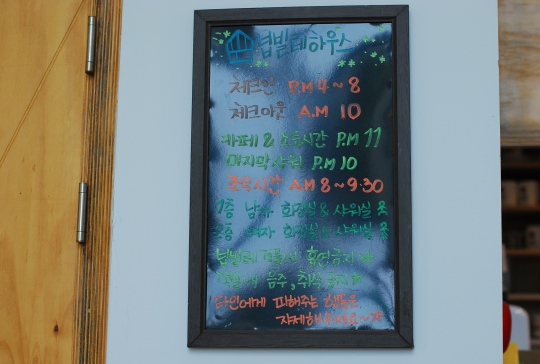 넙빌레하우스
체크인 P.M 4~8
체크아웃 A.M 10
카페 & 소등시간 P.M 11
마지막샤워 P.M 10
조식시간 A.M 8~9:30
1층 남자 화장실 & 샤워실
2층 여자 화장실 & 샤워실
넙빌레 건물 흡연금지
음주, 취식 금지
타인에게 피해주는 행동은
자제해주세요~